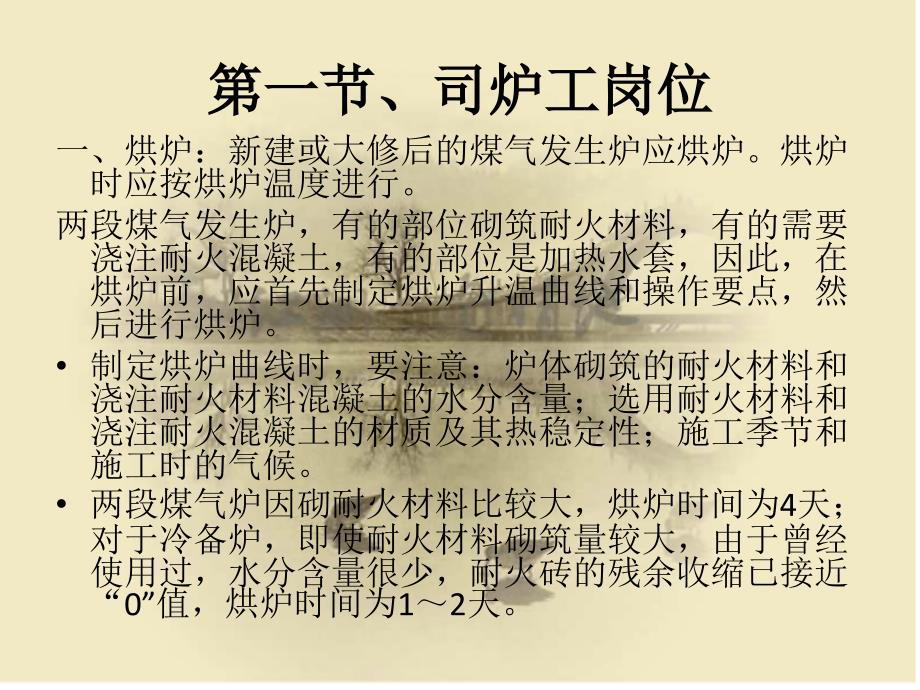 第一节、司炉工岗位
一、烘炉：新建或大修后的煤气发生炉应烘炉。烘炉
时应按烘炉温度进行。
两段煤气发生炉，有的部位砌筑耐火材料，有的需要
浇注耐火混凝土，有的部位是加热水套，因此，在
烘炉前，应首先制定烘炉升温曲线和操作要点，然
后进行烘炉。
• 制定烘炉曲线时，要注意：炉体砌筑的耐火材料和
浇注耐火材料混凝土的水分含量；选用耐火材料和
浇注耐火混凝土的材质及其热稳定性；施工季节和
施工时的气候。
• 两段煤气炉因砌耐火材料比较大，烘炉时间为4天；
对于冷备炉，即使耐火材料砌筑量较大，由于曾经
使用过，水分含量很少，耐火砖的残余收缩已接近
“0”值，烘炉时间为1～2天。